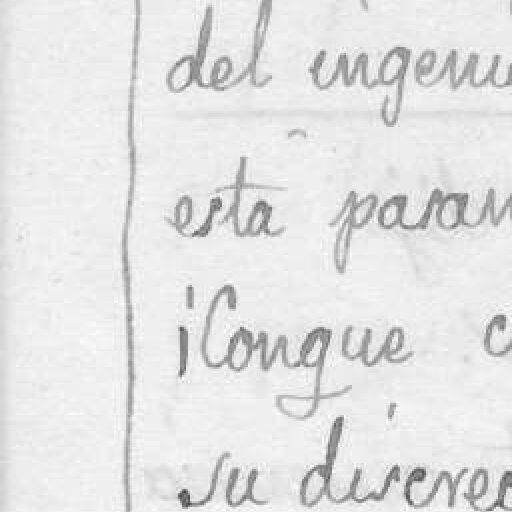 del ingeni
esta paran
¡Conque c
su discrec